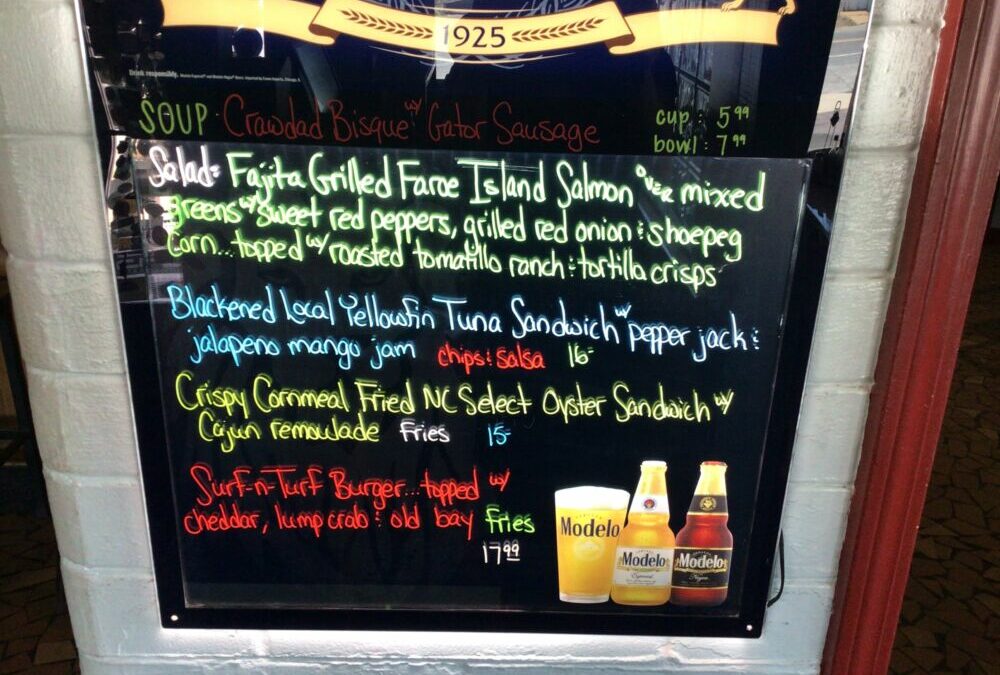 1925
Drink responsibly.
SOUP Crawdad Bisque w/ Gator Sausage
cup : 5.99
bowl : 7.99
Salad: Fajita Grilled Faroe Island Salmon over mixed
greens w/ sweet red peppers, grilled red onion & shoepeg
Corn... topped w/ roasted tomatillo ranch & tortilla crisps
Blackened Local Yellowfin Tuna Sandwich w/ pepper jack &
jalapeno mango jam chips & salsa 16-
Crispy Cornmeal Fried NC Select Oyster Sandwich w/
Cajun remoulade Fries 15-
Surf-n-Turf Burger... topped w/
cheddar, lump crab & old bay Fries
17.99
Modelo
Modelo
Especial
Modelo
Negra